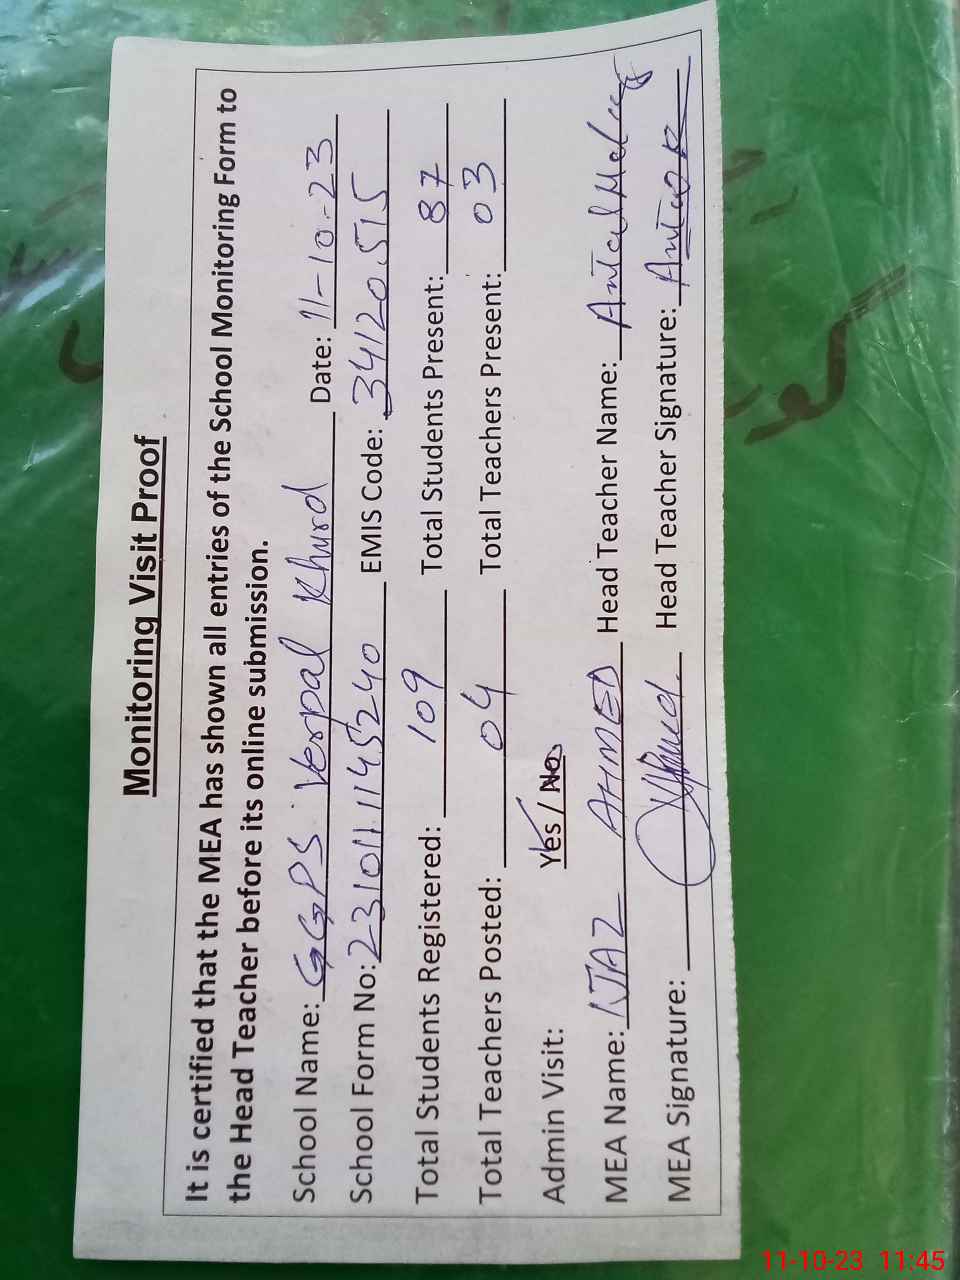 Monitoring Visit Proof
It is certified that the MEA has shown all entries of the School Monitoring Form to
the Head Teacher before its online submission.
School Name: GGPS Verpal Khurd Date: 11-10-23
School Form No: 231011145240 EMIS Code: 34120515
Total Students Registered: 109 Total Students Present: 87
Total Teachers Posted: 04 Total Teachers Present: 03
Admin Visit: Yes / No
MEA Name: IJAZ AHMED Head Teacher Name:
MEA Signature: Head Teacher Signature:
11-10-23 11:45